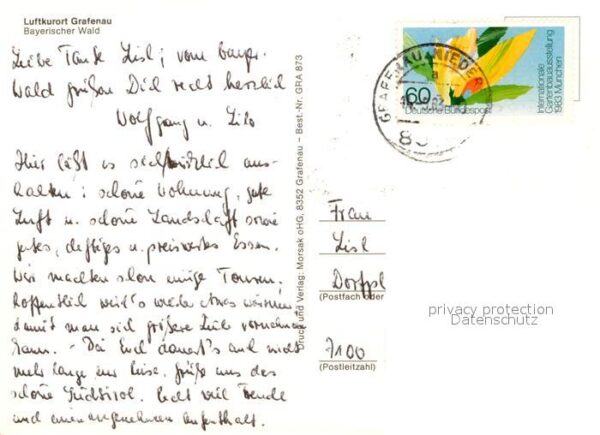 Luftkurort Grafenau
Bayerischer Wald
Liebe Tante Lisl; vom bayr.
Wald grüßen Dich recht herzlich
Wolfgang u. Lilo
Hier läßt es sich wirklich aus-
halten: schöne Wohnung, gute
Luft u. schöne Landschaft sowie
gutes, deftiges u. preiswertes Essen.
Wir machten schon einige Touren;
hoffentlich wird's wieder etwas wärmer,
damit man sich größere Ziele vornehmen
kann. - Bei Euch dauert's auch nicht
mehr lange zur Reise, grüße uns das
schöne Südtirol. Habt viel Freude
und einen angenehmen Aufenthalt.
Druck und Verlag: Morsak oHG, 8352 Grafenau – Best.-Nr. GRA 873
GRAFENAU, NIEDERB
60
Deutsche Bundespost
Internationale
Gartenbauausstellung
1983 München
Frau
Lisl
Dorfpl
(Postfach oder
7100
(Postleitzahl)
privacy protection
Datenschutz